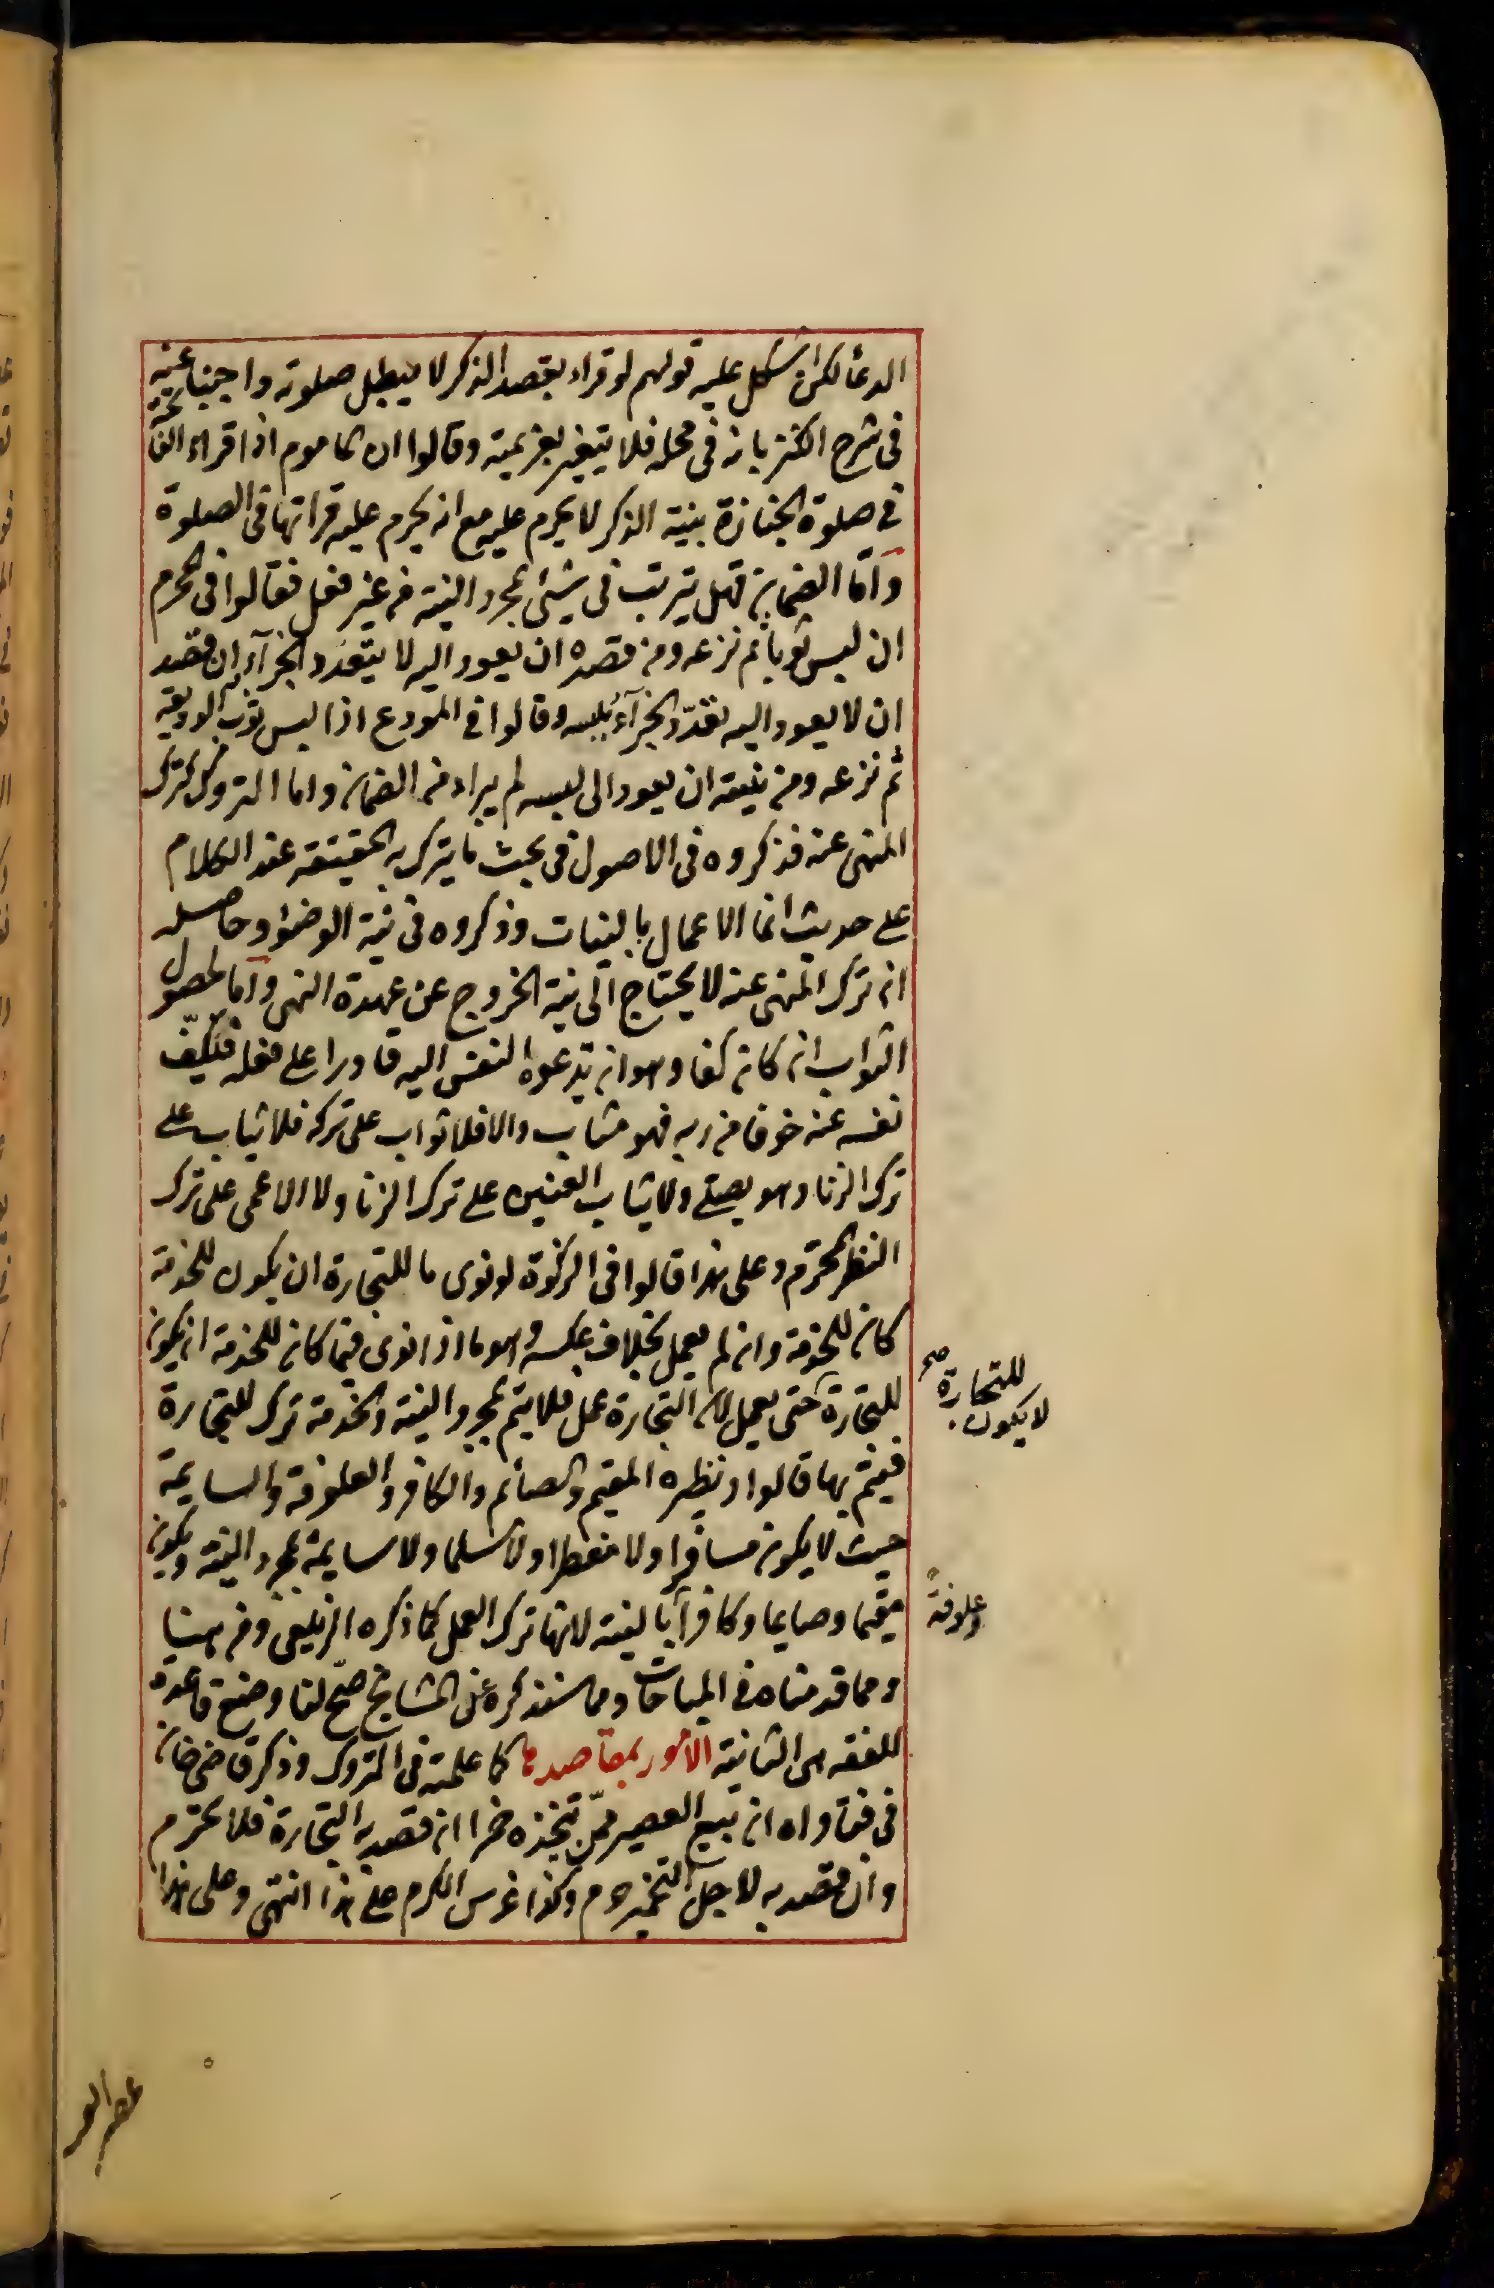 الدعأ لكن اشكل عليه قولهم لو قراء بقصد الذكر لا يبطل صلوته واجبنا عنه
فى شرح الكنز بانه فى محله فلا يتغير بعزيمته وقالوا ان المأموم اذا قراء الفاتحة
فى صلوة الجنازة بنية الذكر لا يحرم عليه مع انه يحرم عليه قراتها فى الصلوة
واما الضمان فهل يترتب فى شيئ بمجرد النية من غير فعل فقالوا فى المحرم
ان لبس ثوبا ثم نزعه ومن قصده ان يعود اليه لا يتعدد الجزآء وان قصد
ان لا يعود اليه تعدد الجزآء بلبسه وقالوا فى المودع اذا لبس ثوب الوديعة
ثم نزعه ومن نيته ان يعود الى لبسه لم يبراء من الضمان واما التروك كترك
المنهى عنه فذكروه فى الاصول فى بحث ما يترك به الحقيقة عند الكلام
على حديث انما الاعمال بالنيات وذكروه فى نية الوضؤ وحاصله
ان ترك المنهى عنه لا يحتاج الى نية الخروج عن عهدة النهى واما لحصول
الثواب ان كان كفا وهو ان تدعوه النفس اليه قادرا على فعله فيكف
نفسه عنه خوفا من ربه فهو مثاب والا فلا ثواب على تركه فلا يثاب على
ترك الزنا وهو يصلى ولا يثاب العنين على ترك الزنا ولا الاعمى على ترك
النظر المحرم وعلى هذا قالوا فى الزكوة لو نوى ما للتجارة ان يكون للخدمة
كان للخدمة وان لم يعمل بخلاف عكسه وهو ما اذا نوى فيما كان للخدمة ان يكون
للتجارة حتى يعمل لان التجارة عمل فلا يتم بمجرد النية والخدمة ترك للتجارة
للتجارة صح
لا يكون
فيتم بها قالوا ونظيره المقيم والصائم والكافر والعلوفة والسايمة
حيث لا يكون مسافرا ولا مفطرا ولا مسلما ولا سايمة بمجرد النية ويكون
مقيما وصايما وكافرا بالنية لانها ترك العمل كما ذكره الزيلعى ومن هنا
وعلوفة
ومما قدمناه فى المباحات ومما سنذكره عن المشايخ صح لنا وضع قاعدة
للفقه هى الثانية الامور بمقاصدها كما علمته فى التروك وذكر قاضى خان
فى فتاواه ان بيع العصير ممن يتخذه خمرا ان قصد به التجارة فلا يحرم
وان قصد به لاجل التخمير حرم وكذا غرس الكرم على هذا انتهى وعلى هذا
عصر العنب